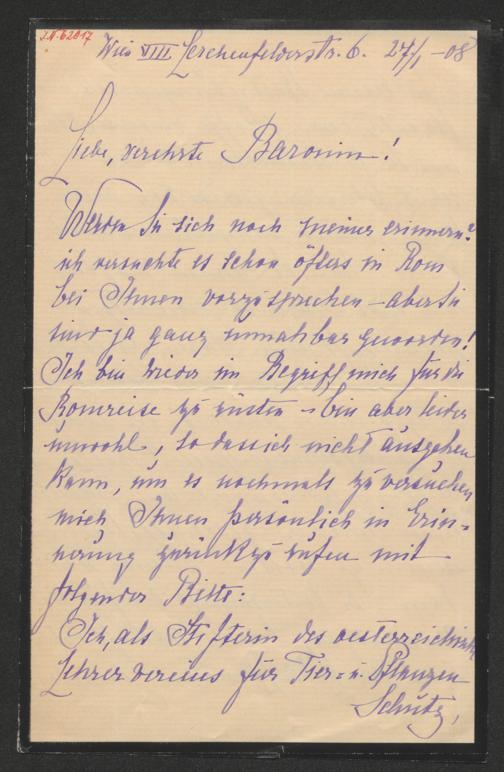 I.N. 62017
Wien VIII Lerchenfelderstr. 6. 27/1 -08
Liebe, verehrte Baronin!
Werden Sie sich noch meiner erinnern?
ich versuchte es schon öfters in Rom
bei Ihnen vorzusprechen – aber Sie
sind ja ganz unnahbar geworden!
Ich bin wieder im Begriff mich für die
Romreise zu rüsten – bin aber leider
unwohl, so dass ich nicht ausgehen
kann, um es nochmals zu versuchen
mich Ihnen persönlich in Erin-
nerung zurückzurufen mit
folgender Bitte:
Ich, als Stifterin des oesterreichisch
Lehrervereines für Tier- u. Pflanzen
Schutz,